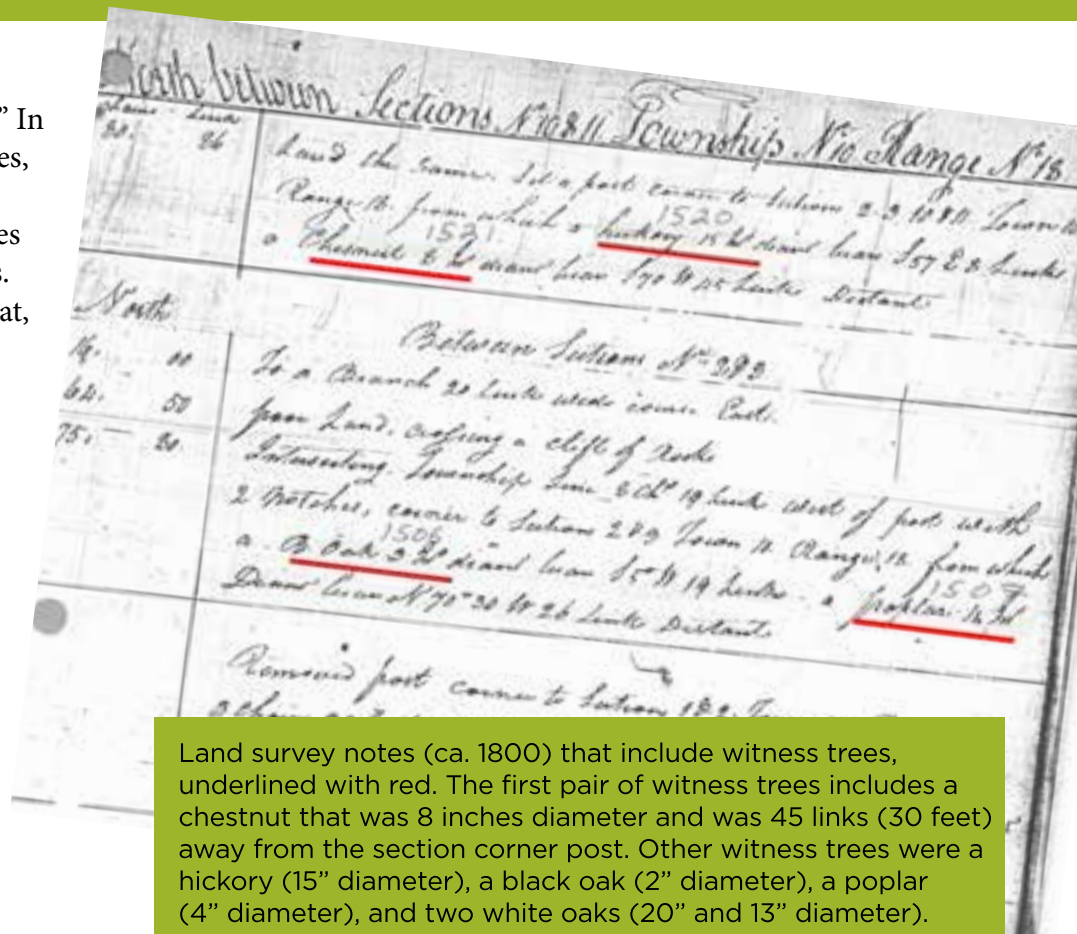 ” In
es,
es
s.
at,
North between Sections No 10 & 11 Township No 10 Range No 18
Chains Links
30. 26
Land the same. Set a post corner to Sections 2-3 10 & 11 Town
1520
Range 18. from which a hickory 15 In diam bears S 57 E 8 Links
1521
a Chesnut 8 In diam bears S 70 W 45 Links Distant
North
Between Sections No 2 & 3
00
To a Branch 20 Links wide course East.
64. 50
poor Land, crossing a clift of Rocks
75. 20.
Intersecting Township Line 8 Chs 19 Links west of post with
2 Notches, corner to Section 2 & 3 Town 10. Range 18. from which
1506
a B Oak 2 In diam bears 19 Links - a poplar In
1507
Diam bears N 70° 30 W 26 Links Distant.
Removed post corner to Section 1 & 2.
Land survey notes (ca. 1800) that include witness trees,
underlined with red. The first pair of witness trees includes a
chestnut that was 8 inches diameter and was 45 links (30 feet)
away from the section corner post. Other witness trees were a
hickory (15” diameter), a black oak (2” diameter), a poplar
(4” diameter), and two white oaks (20” and 13” diameter).